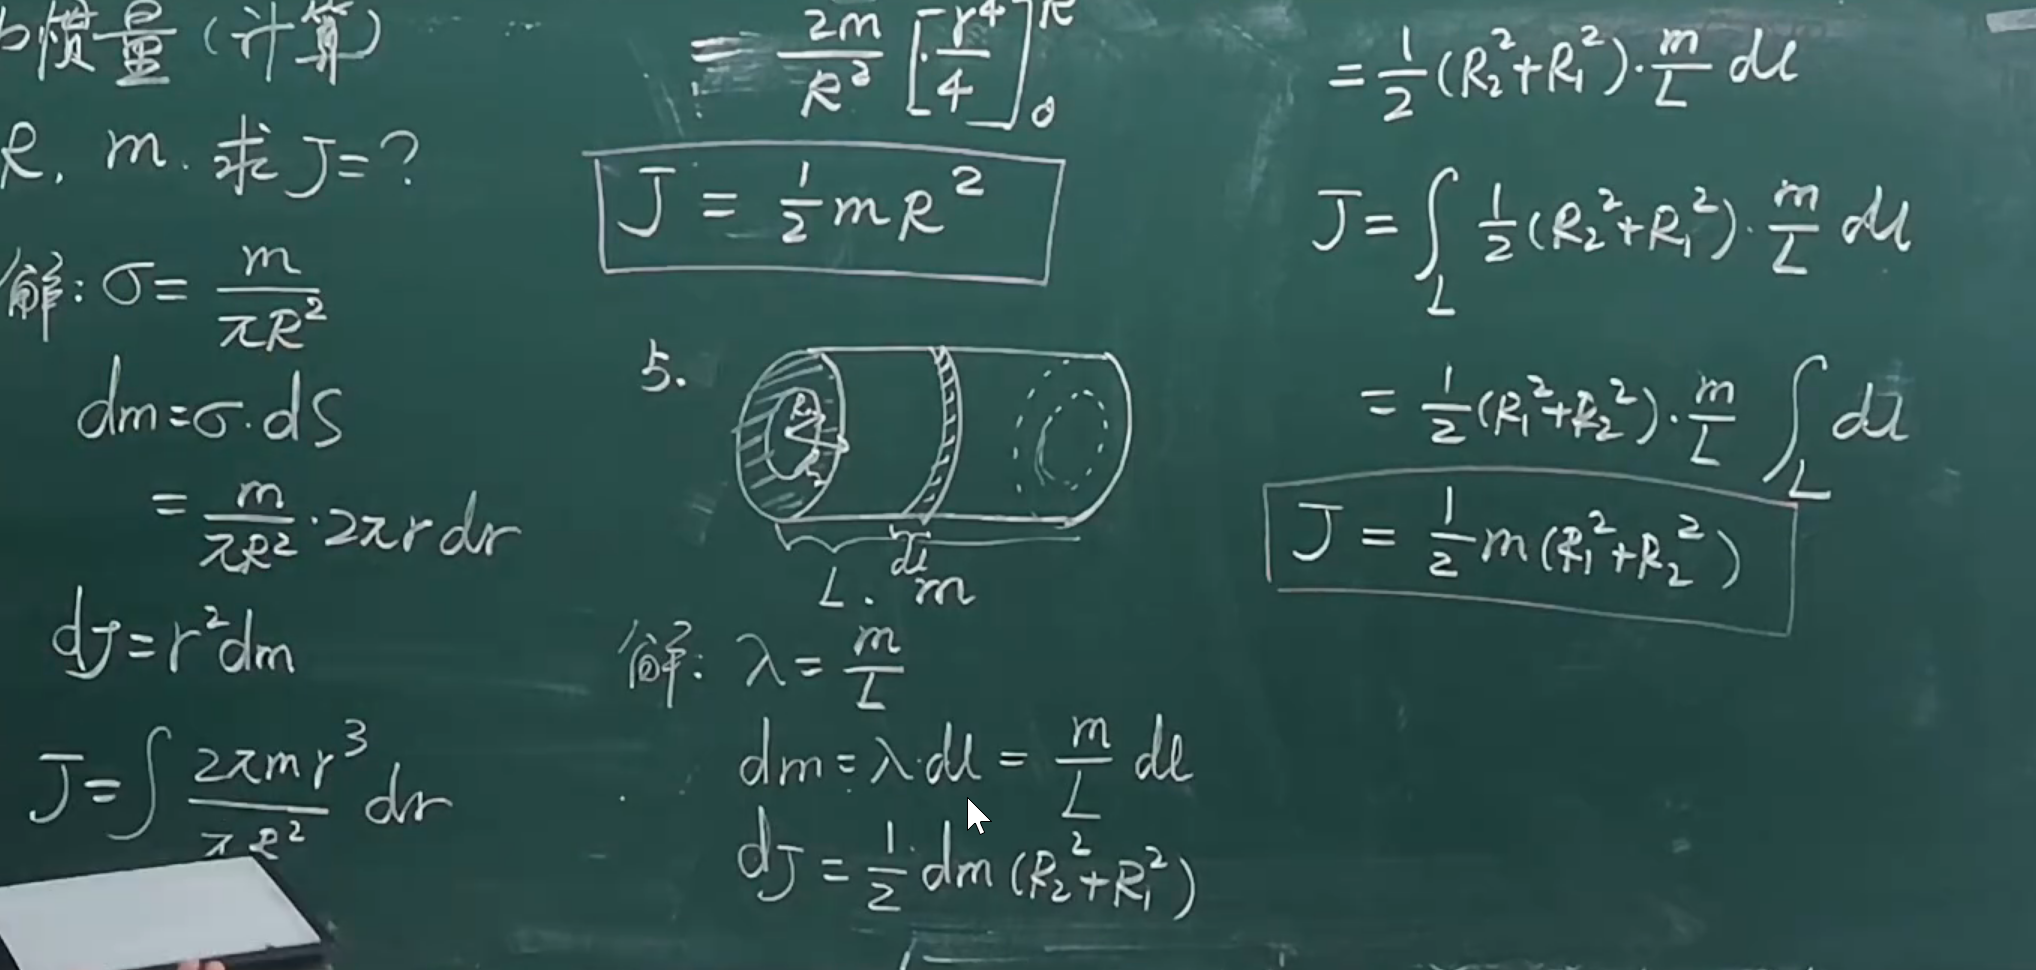 惯量(计算)
R, m. 求 J=?
解: σ= m/(πR²)
dm=σ·dS
= m/(πR²)·2πrdr
dJ=r²dm
J=∫ (2πmr³)/(πR²) dr
= 2m/R² [r⁴/4]₀ᴿ
J = 1/2 mR²
5.
R₁
R₂
dl
L. m
解: λ= m/L
dm=λ·dl= m/L dl
dJ= 1/2 dm(R₂²+R₁²)
= 1/2 (R₂²+R₁²)· m/L dl
J=∫_L 1/2 (R₂²+R₁²)· m/L dl
= 1/2 (R₁²+R₂²)· m/L ∫_L dl
J= 1/2 m(R₁²+R₂²)